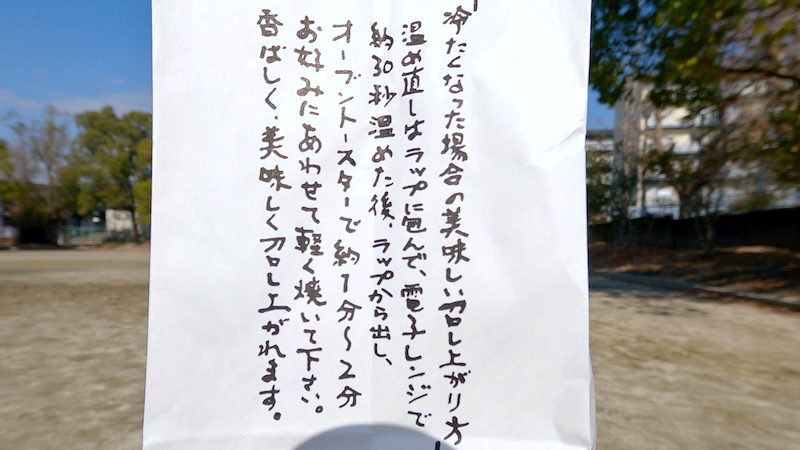 「冷たくなった場合の美味しい召し上がり方」
温め直しはラップに包んで、電子レンジで
約30秒温めた後、ラップから出し、
オーブントースターで約1分〜2分
お好みにあわせて軽く焼いて下さい。
香ばしく、美味しく召し上がれます。